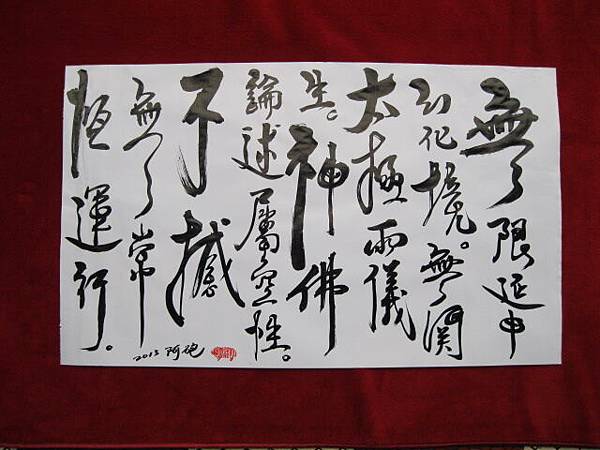 無限延申
幻化境。無関
太極兩儀
生。神佛
論述屬空性。
不撼
無常
恒運行。
2013 阿砲